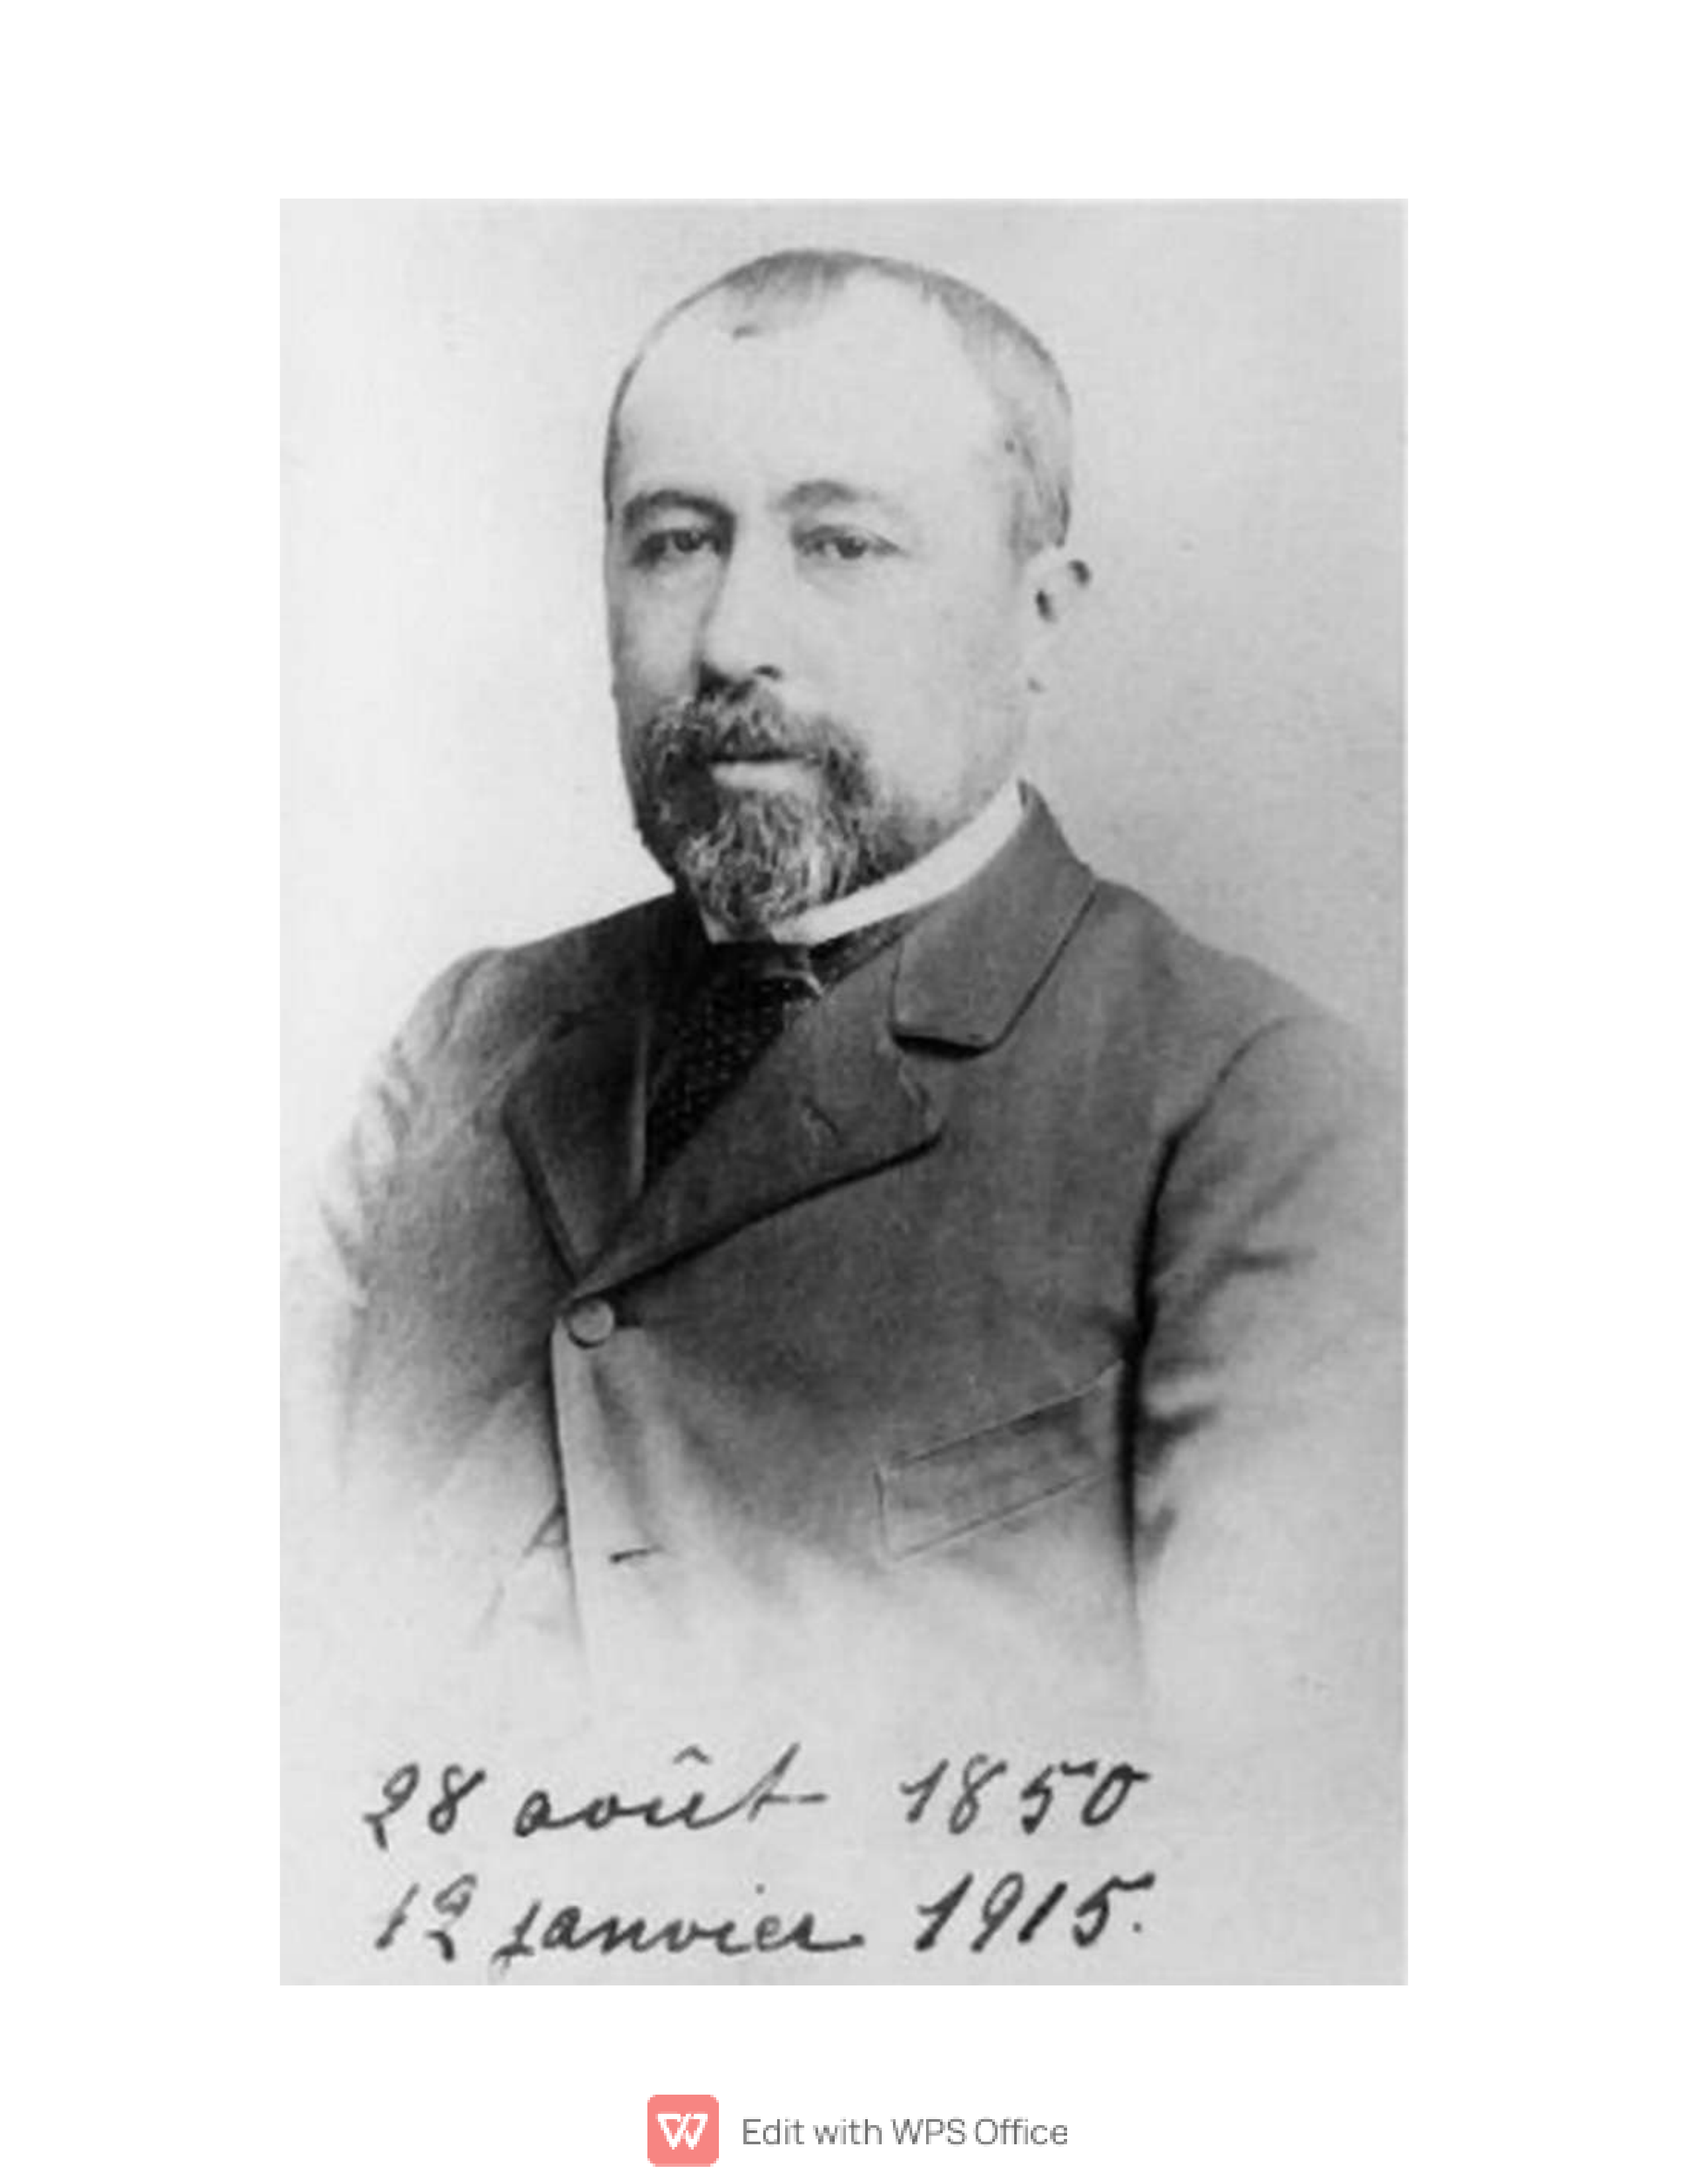 28 août 1850
12 janvier 1915.
Edit with WPS Office